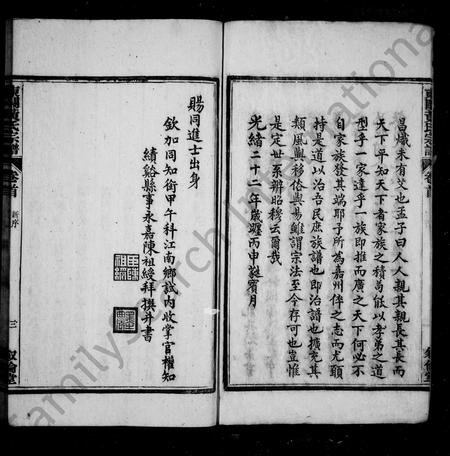 昌熾未有艾也孟子曰人人親其親長其長而
天下平知天下者家族之積苟能以孝弟之道
型乎一家達乎一族即推而廣之天下何必不
自家族發其端耶予所為嘉州倅之志而尤願
持是道以治吾民庶族譜也即治譜也擴充其
類風與移俗與易雖謂宗法至今存可也豈惟
是定世系辨昭穆云爾哉
光緒二十二年歲躔丙申蕤賓月
賜同進士出身
欽加同知銜甲午科江南鄉試內收掌官權知
績谿縣事永嘉陳祖綬拜撰并書
卷首
新序
三
敘倫堂
FamilySearch International